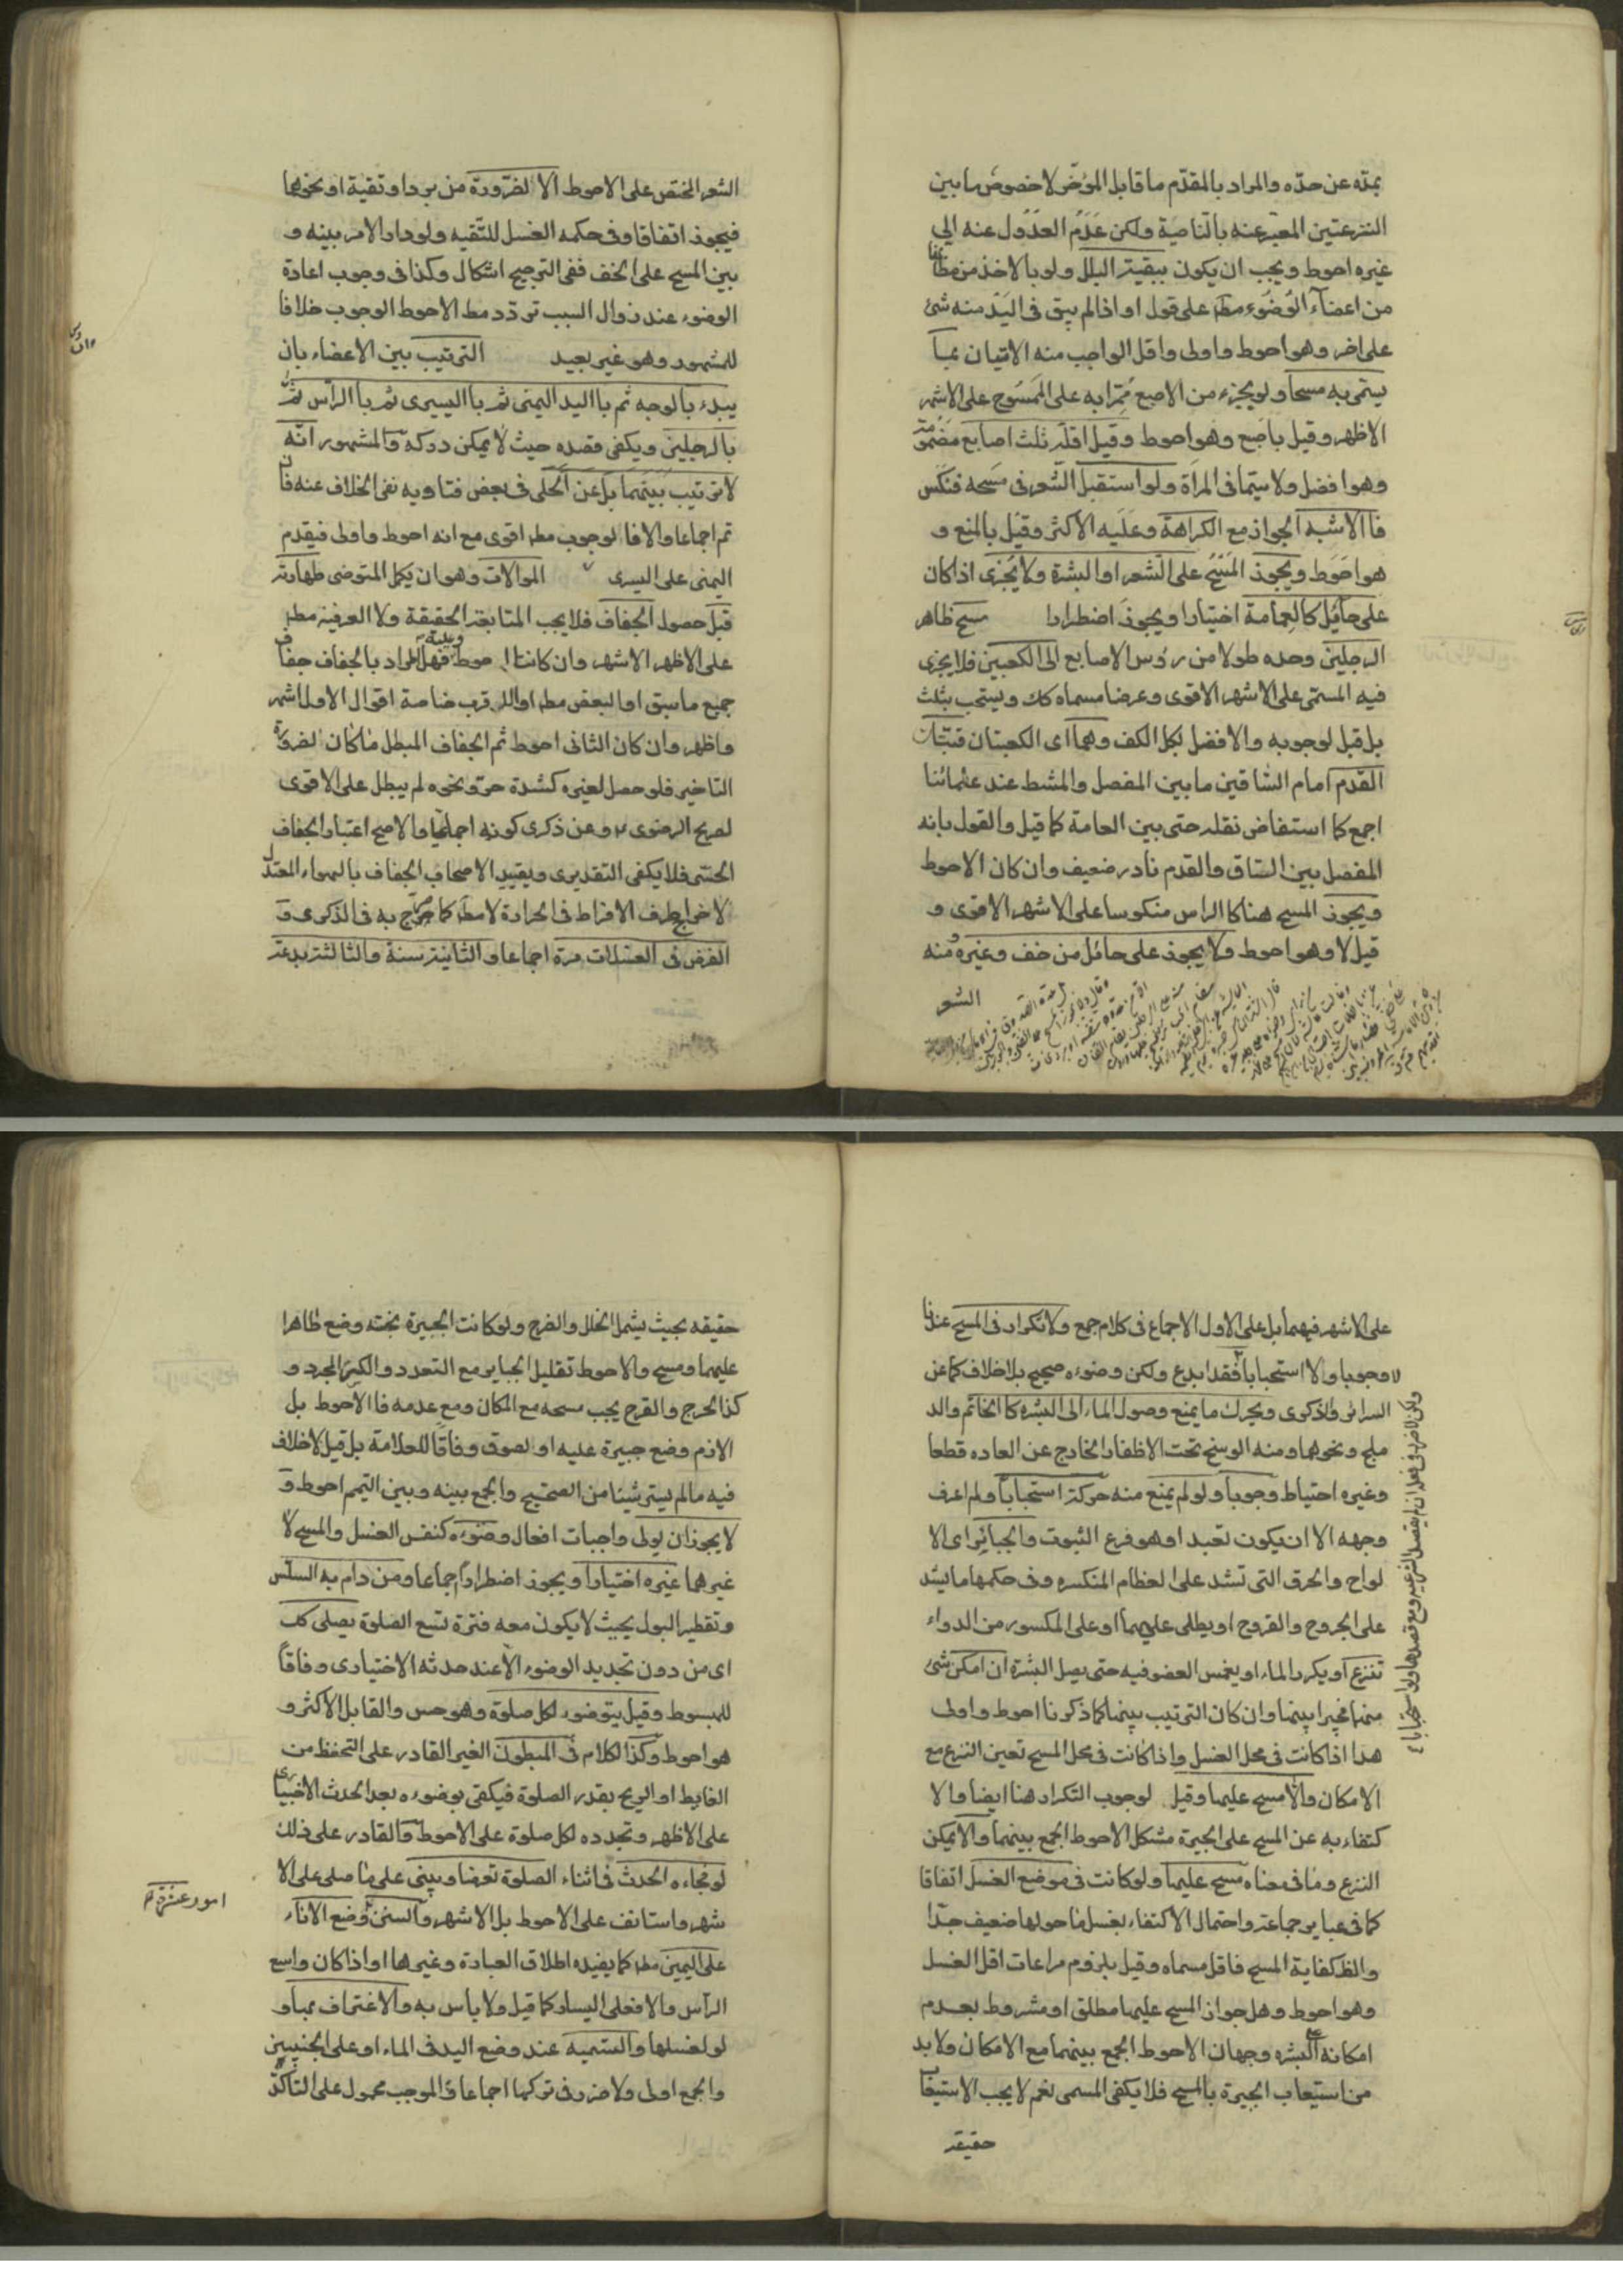 بمدّه عن حدّه والمراد بالمقدّم ما قابل المؤخر لا خصوص ما بين
النزعتين المعبّر عنه بالناصية ولكن عَدَم العدُول عنه الى
غيره احوط ويجب ان يكون ببقيّة البلل ولو بالاخذ من
من اعضآء الوُضوء مطلقا على قول او اذا لم يبق فى اليد منه شئ
على اخر وهو احوط واولى واقل الواجب منه الاتيان بما
يسمّى به مسحا ولو بجزء من الاصبع مُمّرا به على المَمسُوح على الاشهر
الاظهر وقيل باصَبع وهو احوط وقيل اقلّه ثلث اصابع مَضمُومة
وهو افضل ولا سيّما فى المرأة ولو استقبل الشّعر فى مسَحه فنكس
فاالاشبه الجواز مع الكراهة وعَلَيه الاكثر وقيل بالمنع و
هو احوَط ويجوز المَسْح على الشعر او البشرة ولا يُجزى اذا كان
على حآئل كالعِمامة اختيارا ويجوز اضطرارا مسح ظاهر
الرجلين وحده طولا من رؤس الاصابع الى الكعبين فلا يجزى
فيه المسمّى على الاشهر الاقوى وعرضا مسماه كك ويستحب بثلث
بل قيل لوجوبه والافضل بكل الكف وهما اى الكعبتان قبّتان
القدم امام السّاقين ما بين المفصل والمشط عند علمائنا
اجمع كما استفاض نقله حتى بين العامة كما قيل والقول بانه
المفصل بين الساق والقدم نادر ضعيف وان كان الاحوط
ويجوز المسح هنا كا الراس منكوسا على الاشهر الاقوى و
قيل لا وهو احوط ولا يجوز على حائل من خف وغيره منه
الشعر
الشعر المختص على الاحوط الا لضرورة من برد او تقية او نحوهما
فيجوز اتفاقا وفى حكمه الغسل للتّقيه ولو دار الامر بينه و
بين المسح على الخف ففى الترجيح اشكال وكذا فى وجوب اعادة
الوضوء عند زوال السبب تردّد مط الاحوط الوجوب خلافا
للمشهور وهو غير بعيد التر‌تيب بين الاعضاء بان
يبدء بالوجه ثم باليد اليمنى ثم باليسرى ثم باالرأس ثمّ
بالرجلين ويكفى قصده حيث لا يمكن دركه والمشهور انّه
لا ترتيب بَينَهما بل عن الحَلى فى بعض فتاويه نفى الخلاف عنه فان
تم اجماعا والا فا لوجوب مط اقوى مع انه احوط واولى فيقدم
اليمنى على اليسرى الموالات وهو ان يكمل المتوضى طهارته
قبل حصول الجفاف فلا يجب المتابعة الحقيقة ولا العرفية مط
على الاظهر الاشهر وان كانتا احوط فهل المراد بالجفاف جفاف
جميع ما سبق او البعض مط او الاقرب خاصة اقوال الاول اشهر
واظهر وان كان الثانى احوط ثم الجفاف المبطل ما كان لضرورة
التاخير فلو حصل لغيره كشدة حرّ ونحوه لم يبطل على الاقوى
لصريح الرضوى وعن ذكرى كونه اجماعيا والاصح اعتبار الجفاف
الحسّى فلا يكفى التقديرى وتقييد الاصحاب الجفاف بالهواء المعتدل
لاخراج طرف الافراط فى الحرارة لا مط كما صرّح به فى الذكرى و
الفرض فى الغسلات مرة اجماعا والثانية سنة والثالثة بدعة
على الاشهر فيهما بل على الاول الاجماع فى كلام جمع ولا تكرار فى المسح عندنا
لا وجوبا ولا استحبابا فقد ابدع ولكن وضوءه صحيح بلا خلاف كما عن
السرائر والذكرى ويحرك ما يمنع وصول الماء الى البشره كا الخاتم والد
ملج ونحوهما ومنه الوسخ تحت الاظفار الخارج عن العاده قطعا
وغيره احتياط وجوباً ولو لم يمنع منه حركه استحباباً ولم اعرف
وجهه الا ان يكون تعبد او هو فرع الثبوت والجبائر اى الا
لواح والخرق التى تشد على العظام المنكسره وفى حكمها ما يشد
على الجروح والقروح او يطلى عليهما او على المكسور من الدواء
تنزع او يكرر الماء او يغمس العضو فيه حتى يصل البشرة ان امكن شئ
منهما مخيرا بينهما وان كان الترتيب بينهما كما ذكرنا احوط واولى
هذا اذا كانت فى محل الغسل واذا كانت فى محل المسح تعين النزع مع
الامكان والا مسح عليهما وقيل لوجوب التكرار هنا ايضا والا
كتفاء به عن المسح على الجبيرة مشكل الاحوط الجمع بينهما والا يمكن
النزع وما فى معناه مسح عليها ولو كانت فى موضع الغسل اتفاقا
كما فى عباير جماعة واحتمال الاكتفاء بغسل ما حولها ضعيف جدّا
والظ كفاية المسح فاقل مسماه وقيل بلزوم مراعات اقل الغسل
وهو احوط وهل جواز المسح عليها مطلق او مشروط بعدم
امكانه على البشره وجهان الاحوط الجمع بينهما مع الامكان ولا بد
من استيعاب الجبيرة بالمسح فلا يكفى المسمى نعم لا يجب الاستيعاب
حقيقه
حقيقه بحيث يشمل الخلل والفرج ولو كانت الجبيرة نجته وضع طاهرا
عليهما ومسح والاحوط تقليل الجباير مع التعدد والكسر المجرد و
كذا الجرح والقرح يجب مسحه مع المكان ومع عدمه فا الاحوط بل
الازم وضع جبيرة عليه او لصوق وفاقا للعلامة بل قيل لا خلاف
فيه مالم يستر شيئا من الصحيح والجمع بينه وبين التيمم احوط و
لا يجوز ان يولى واجبات افعال وضوءه كنفس الغسل والمسح لا
غيرهما غيره اختياراً ويجوز اضطراراً اجماعا ومن دام به السلس
وتقطير البول بحيث لا يكون معه فترة تسع الصلوة يصلى كك
اى من دون تجديد الوضوء الا عند حدثه الاختيارى وفاقاً
للمبسوط وقيل يتوضوء لكل صلوة وهو حسن والقابل الاكثر و
هو احوط وكذا الكلام فى المبطون الغير القادر على التحفظ من
الغايط او الريح بقدر الصلوة فيكفى بوضوءه بعد الحدث الاختيارى
على الاظهر وتجدده لكل صلوة على الاحوط والقادر على ذلك
لو فجاءه الحدث فى اثناء الصلوة توضا ويبنى على ما صلى على الا
شهر واستانف على الاحوط بل الاشهر والسنن وضع الاناء
على اليمين مط كما يفيده اطلاق العبادة وغيرها او اذا كان واسع
الرأس والا فعلى اليسار كما قيل ولا باس به والاغتراف بها و
لو لغسلها والتسميه عند وضع اليد فى الماء او على الجنبين
والجمع اولى ولا ضرر فى تركها اجماعا والموجب محمول على التاكد
امور عشرة